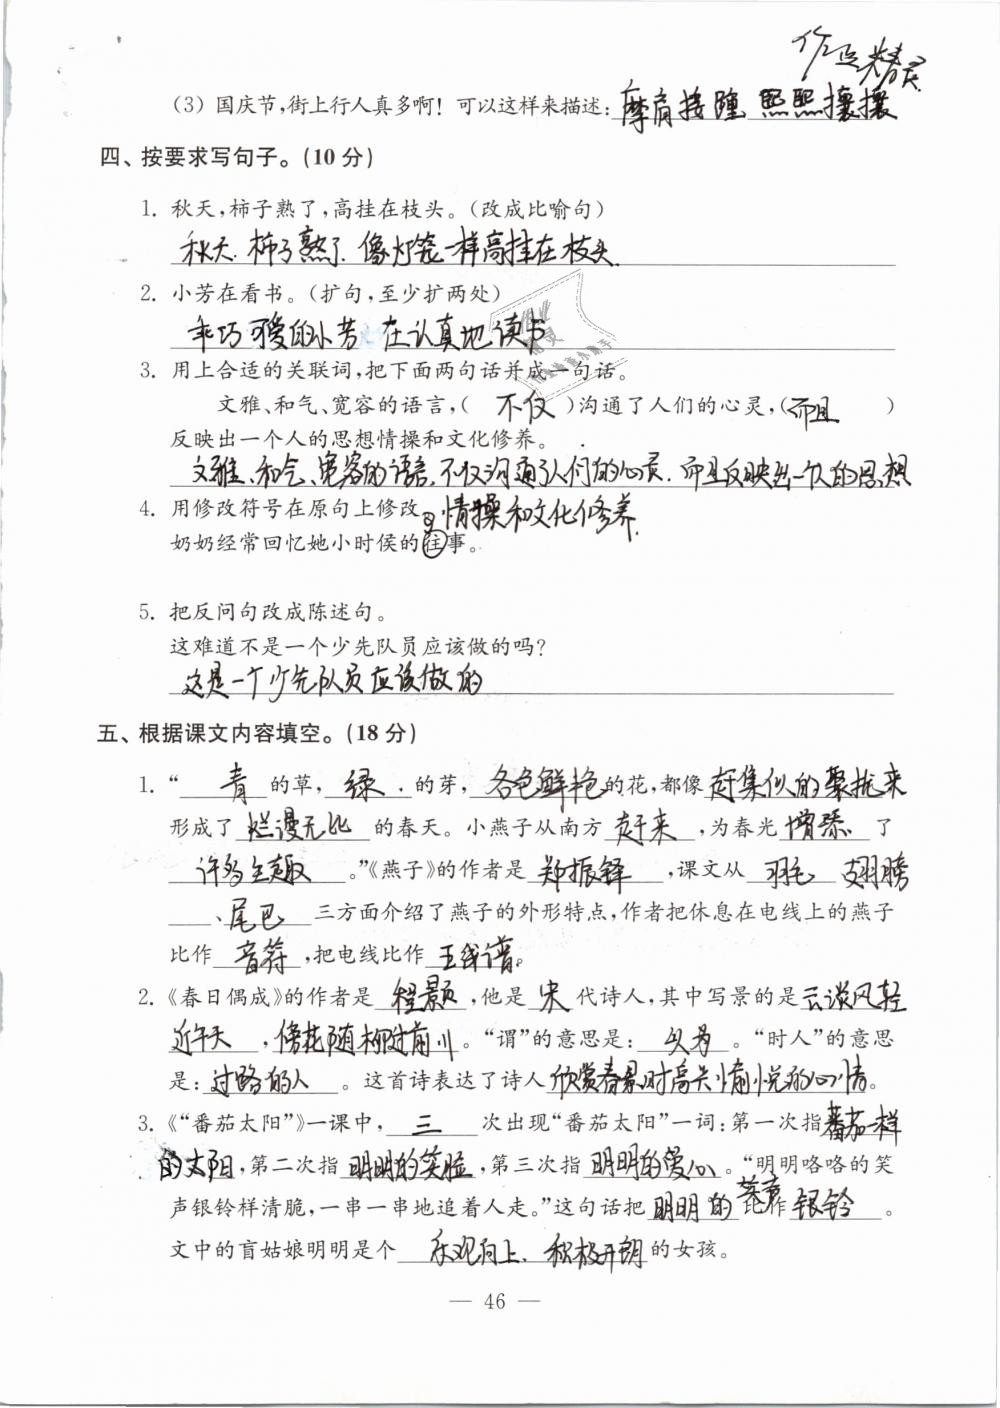 作业精灵
(3) 国庆节,街上行人真多啊！可以这样来描述:摩肩接踵 熙熙攘攘
四、按要求写句子。(10分)
1. 秋天,柿子熟了,高挂在枝头。(改成比喻句)
秋天.柿子熟了.像灯笼一样高挂在枝头.
2. 小芳在看书。(扩句,至少扩两处)
乖巧可爱的小芳 在认真地读书
3. 用上合适的关联词,把下面两句话并成一句话。
文雅、和气、宽容的语言,( 不仅 )沟通了人们的心灵,(而且 )
反映出一个人的思想情操和文化修养。
文雅、和气、宽容的语言,不仅沟通了人们的心灵.而且反映出一个人的思想
4. 用修改符号在原句上修改。 情操和文化修养.
奶奶经常回忆她小时侯的往事。
5. 把反问句改成陈述句。
这难道不是一个少先队员应该做的吗?
这是一个少先队员应该做的
五、根据课文内容填空。(18分)
1. “ 青 的草, 绿 的芽, 各色鲜艳的花,都像赶集似的聚拢来
形成了 烂漫无比 的春天。小燕子从南方 赶来 ,为春光 增添 了
许多生趣 。”《燕子》的作者是 郑振铎 ,课文从 羽毛 翅膀
、尾巴 三方面介绍了燕子的外形特点,作者把休息在电线上的燕子
比作 音符 ,把电线比作 五线谱。
2.《春日偶成》的作者是 程颢 ,他是 宋 代诗人,其中写景的是云淡风轻
近午天 ,傍花随柳过前川。“谓”的意思是: 以为 。“时人”的意思
是:过路的人 。这首诗表达了诗人欣赏春景时高兴愉悦的心情。
3.《“番茄太阳”》一课中, 三 次出现“番茄太阳”一词:第一次指番茄一样
的太阳,第二次指 明明的笑脸 ,第三次指 明明的爱心 。“明明咯咯的笑
声银铃样清脆,一串一串地追着人走。”这句话把 明明的笑声比作 银铃 。
文中的盲姑娘明明是个 乐观向上、积极开朗 的女孩。
— 46 —